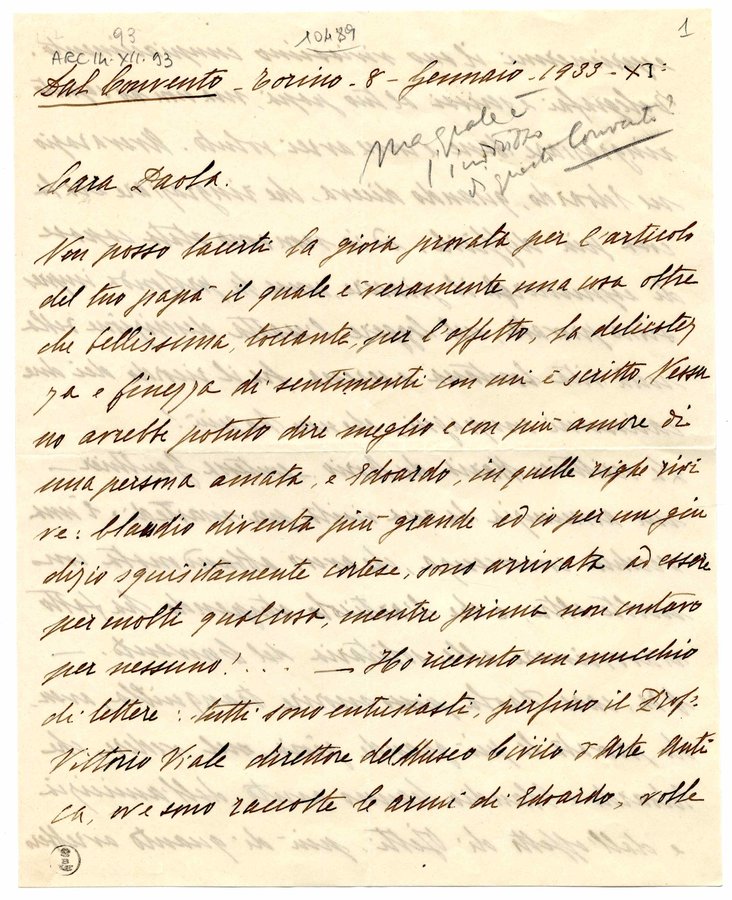 93
10489
1
ARC 14.XII.93
Dal Convento - Torino - 8 - Gennaio - 1933 - XI:
Ma qual è
l'indirizzo
di questo Convento?
Cara Paola.
Non posso tacerti la gioia provata per l'articolo
del tuo papà il quale è veramente una cosa oltre
che bellissima, toccante, per l'affetto, la delicatez
za e finezza di sentimenti con cui è scritto. Nessu
no avrebbe potuto dire meglio e con più amore di
una persona amata, e Edoardo, in quelle righe rivi
ve: Claudio diventa più grande ed io per un giu
dizio squisitamente cortese, sono arrivata ad essere
per molti qualcosa, mentre prima non contavo
per nessuno! . . . — Ho ricevuto un mucchio
di lettere: tutti sono entusiasti, perfino il Prof:
Vittorio Viale direttore del Museo Civico d'Arte Anti
ca, ove sono raccolte le armi di Edoardo, volle